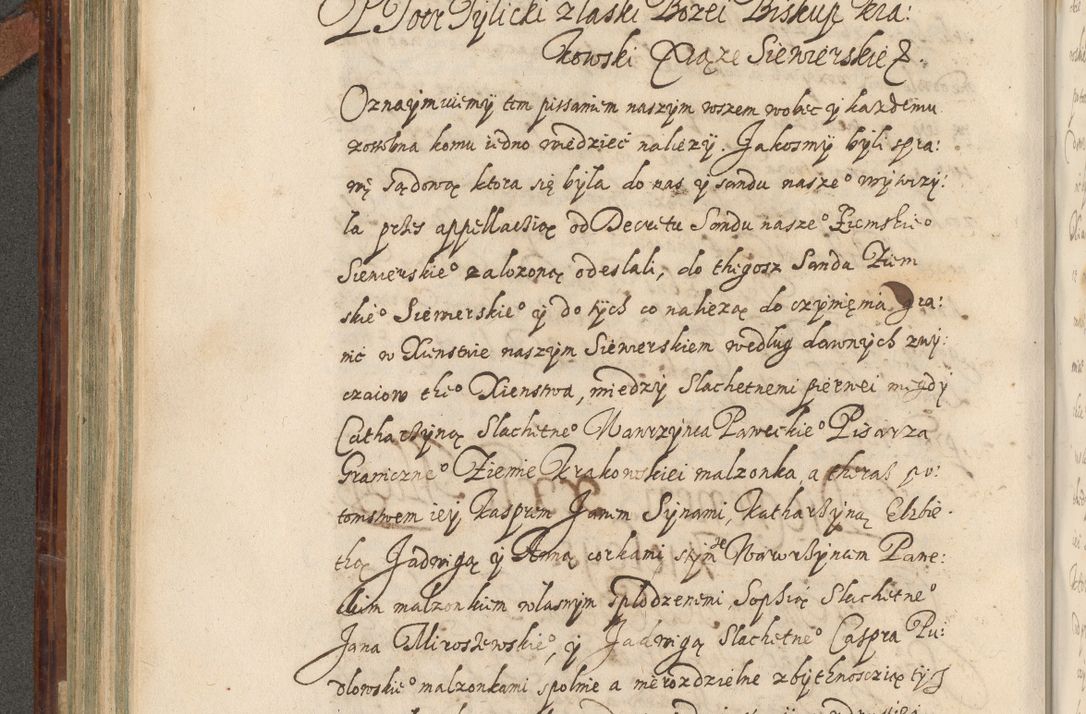 Piotr Tylicki z laski Bozei Biskup Kra:
kowski Xiąze Siewierskie
Oznaymuiemÿ tem pissaniem naszÿm wszem wobec ÿ kazdemu
zossobna komu iedno wiedziec nalezÿ. Jakosmÿ bÿli spra:
wę sądową ktora się bÿla do nas ÿ sandu nasze° wÿtoczÿ:
la przes appellacÿią od Decretu Sandu nasze° Ziemskie°
Siewierskie° zalozoną odeslali, do thegosz Sandu Ziem
skie° Siewierskie° ÿ do tÿch co nalezą do czÿnięnia gra:
nic w Xienstwie naszÿm Siewierskiem według dawnÿch zwÿ:
czaiow the° Xienstwa, miedzÿ Slachetnemi pierwei mięgdÿ
Catharzÿną Slachetne° Wawrzÿnca Paweckie° Pisarza
Graniczne° Ziemie Krakowskiei malzonka, a theras po:
tomstwem ieÿ Kasprem Janem Sÿnami, Katharzÿną Elzbie
thą Jadwigą ÿ Anną corkami z tÿmze Wawrzÿncem Pawe:
ckim malzonkiem wlasnÿm splodzenemi, Sophią Slachetne°
Jana Miroszewskie°, ÿ Jadwigą Slachetne° Caspra Pu:
dlowskie° malzonkami spolnie a nierozdzielne zbÿthnoscią tÿz